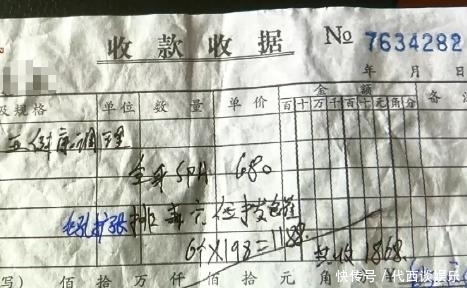 收款收据 № 7634282
年 月 日
及规格 单位 数量 单价 金额 备注
百十万千百十元角分
亚健康调理
全身SPA 680
毛孔扩张 排毒
6个X198=1188
共收1868
写） 佰 拾 万 仟 佰 拾 元 角
快传号 / 代西谈娱乐